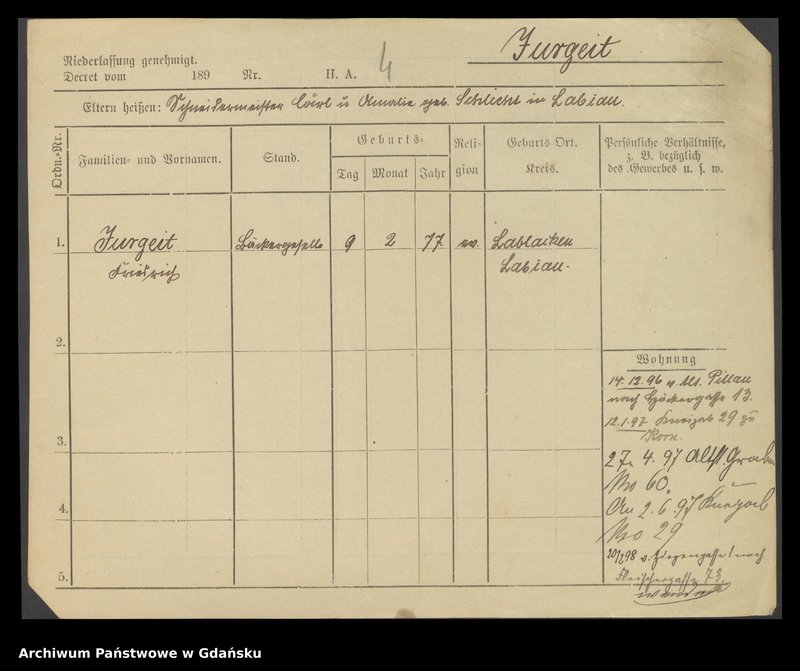 Jurgeit
Niederlassung genehmigt.
Decret vom 189 Nr. II. A. 4
Eltern heißen: Schneidermeister Carl u Amalie geb. Schlicht in Labiau.
Ordn.-Nr.
Familien- und Vornamen.
Stand.
Geburts-
Tag Monat Jahr
Reli-
gion
Geburts Ort.
Kreis.
Persönliche Verhältnisse,
z. B. bezüglich
des Gewerbes u. s. w.
1. Jurgeit Bäckergeselle 9 2 77 ev. Lablacken
Friedrich Labiau.
2.
3.
4.
5.
Wohnung
14.12.96 v. Alt. Pillau
nach Häkergasse 13.
12.1.97 Kneipab 29 zu
Korn.
27. 4. 97 Altst. Graben
No 60.
An 2.6.97 Kneipab
No 29
v. Ziegengasse 1 nach
Fleischergasse 73
Archiwum Państwowe w Gdańsku